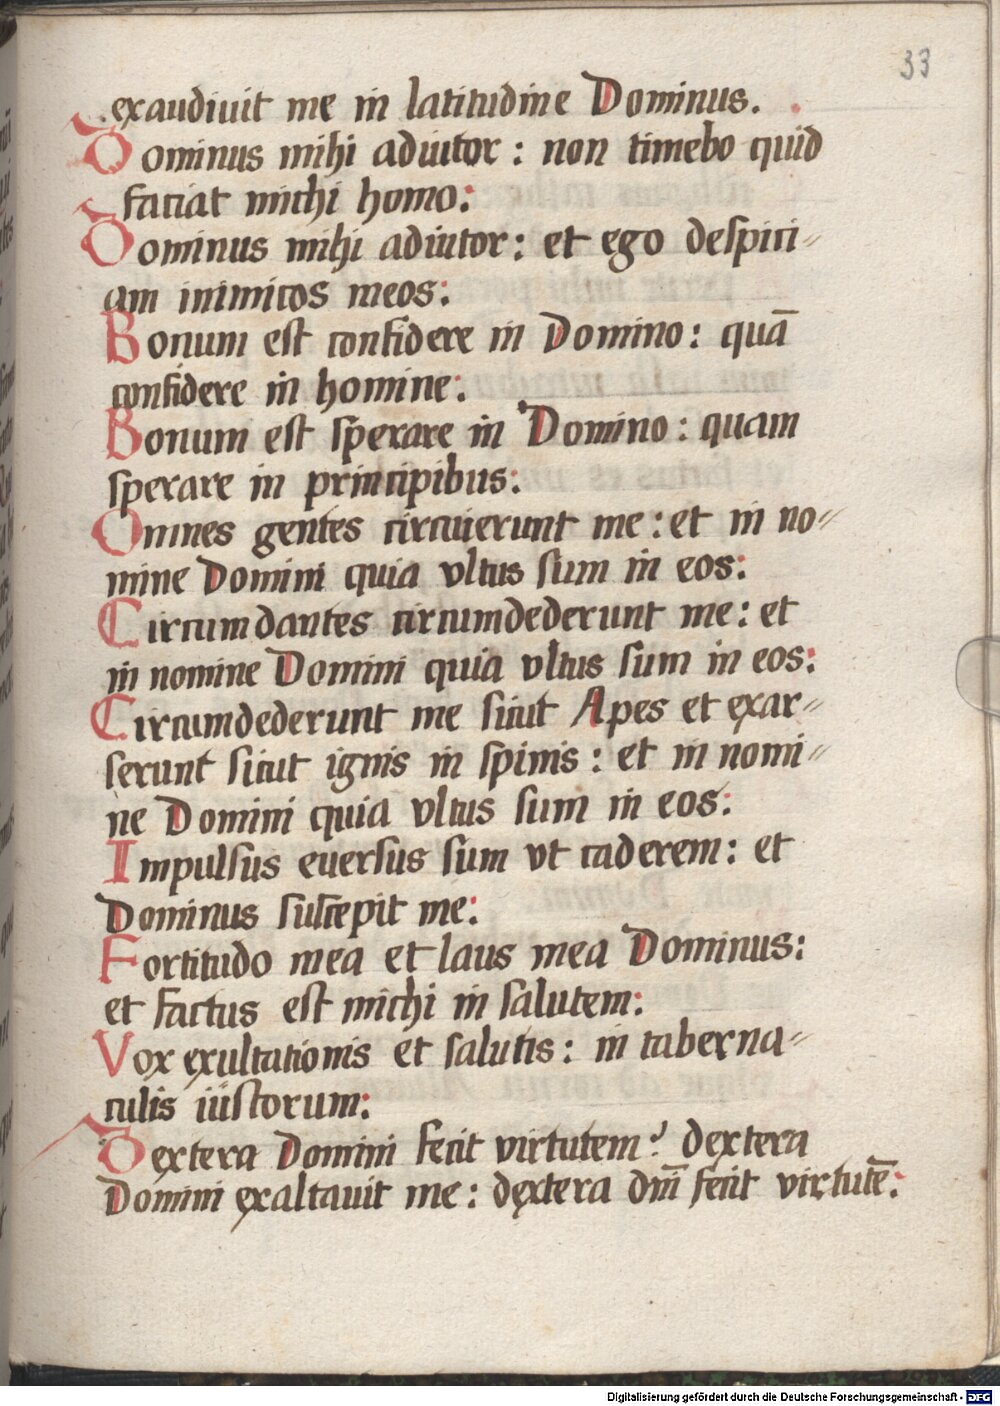 33
exaudiuit me in latitudine Dominus.
Dominus mihi adiutor: non timebo quid
faciat michi homo:
Dominus mihi adiutor: et ego despici=
am inimicos meos:
Bonum est confidere in Domino: quā
confidere in homine:
Bonum est sperare in Domino: quam
sperare in principibus:
Omnes gentes circuierunt me: et in no=
mine Domini quia vltus sum in eos:
Circumdantes circumdederunt me: et
in nomine Domini quia vltus sum in eos:
Circumdederunt me sicut Apes et exar=
serunt sicut ignis in spinis: et in nomi=
ne Domini quia vltus sum in eos:
Impulsus euersus sum vt caderem: et
Dominus suscepit me:
Fortitudo mea et laus mea Dominus:
et factus est michi in salutem:
Vox exultationis et salutis: in taberna=
culis iustorum:
Dextera Domini fecit virtutem? dextera
Domini exaltauit me: dextera dm̄i fecit virtutē:
Digitalisierung gefördert durch die Deutsche Forschungsgemeinschaft - DFG